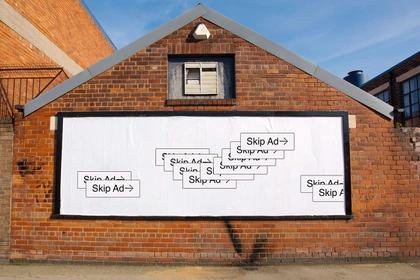 Skip Ad→
Skip Ad→
Skip Ad
Skip Ad
Skip Ad→
Skip Ad
Skip Ad→
Skip Ad
Skip A